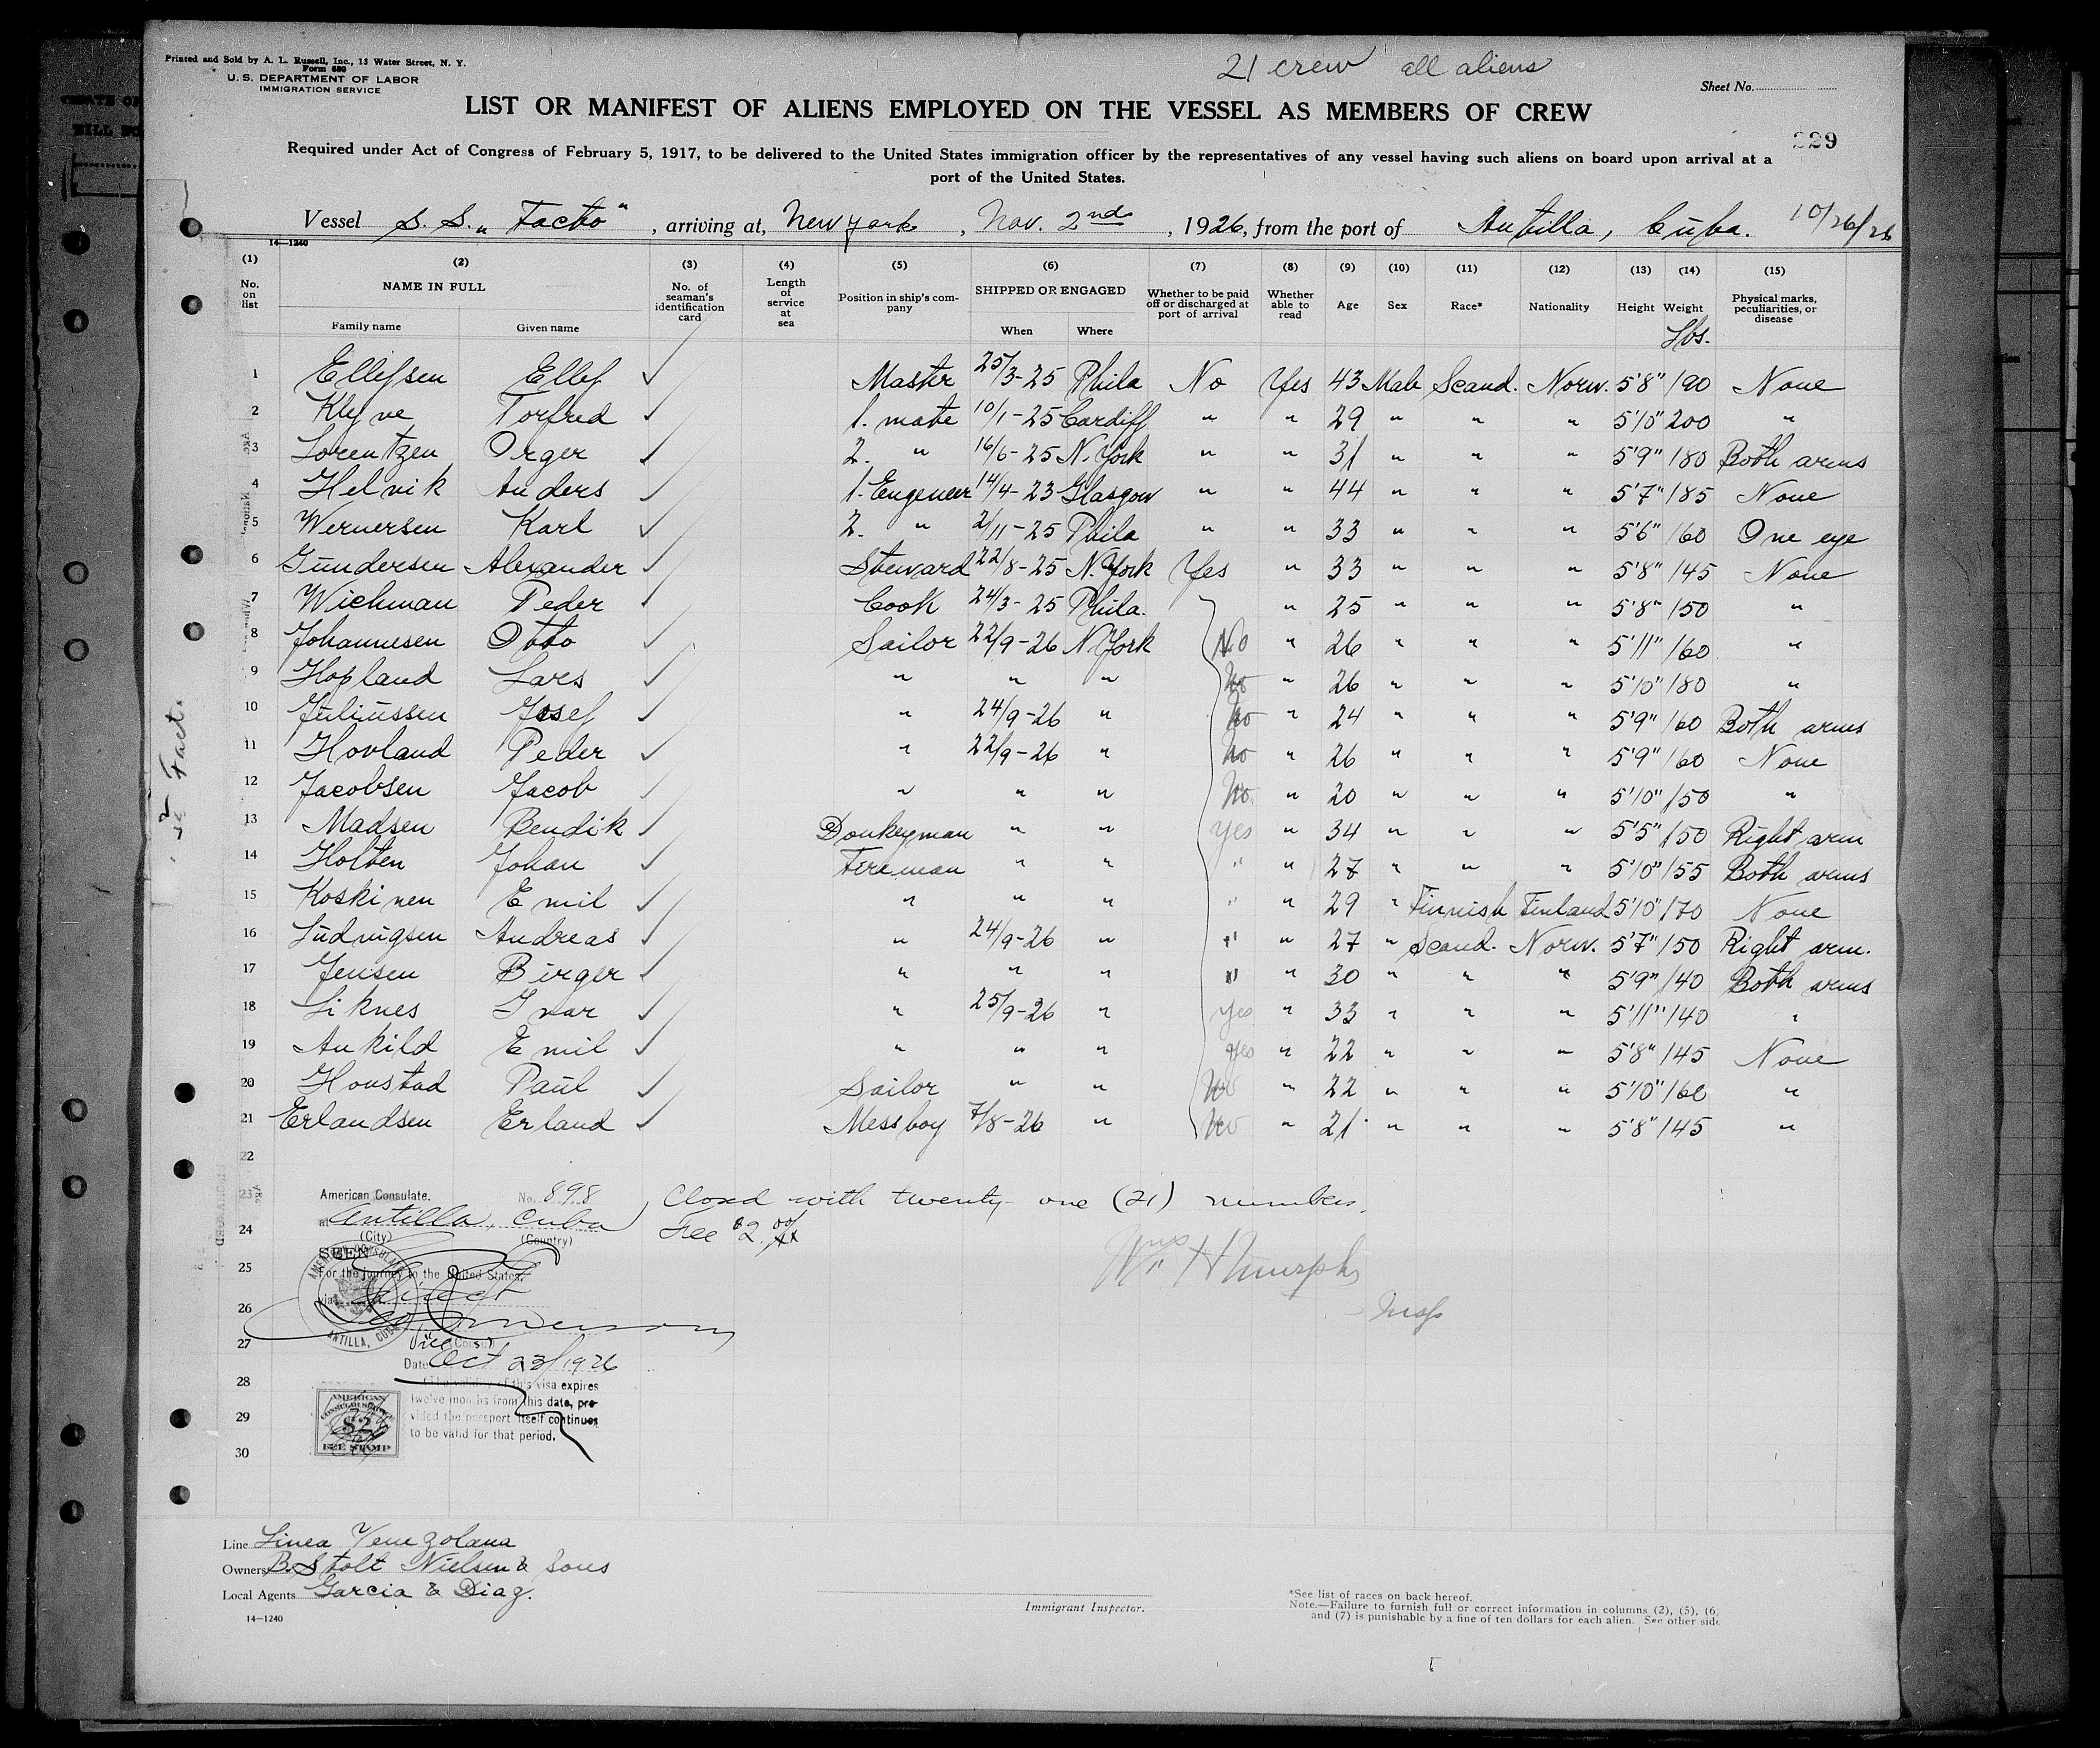 Printed and Sold by A. L. Russell, Inc., 13 Water Street, N. Y.
Form 680
U. S. DEPARTMENT OF LABOR
IMMIGRATION SERVICE
21 crew all aliens
Sheet No.
LIST OR MANIFEST OF ALIENS EMPLOYED ON THE VESSEL AS MEMBERS OF CREW
229
Required under Act of Congress of February 5, 1917, to be delivered to the United States immigration officer by the representatives of any vessel having such aliens on board upon arrival at a
port of the United States.
Vessel S. S. „Facto", arriving at, New York, Nov. 2nd, 1926, from the port of Antilla, Cuba. 10/26/26
14—1240
(1) (2) (3) (4) (5) (6) (7) (8) (9) (10) (11) (12) (13) (14) (15)
No. on list NAME IN FULL Family name Given name No. of seaman's identification card Length of service at sea Position in ship's company SHIPPED OR ENGAGED When Where Whether to be paid off or discharged at port of arrival Whether able to read Age Sex Race* Nationality Height Weight Physical marks, peculiarities, or disease
Lbs.
1 Ellefsen Ellef ✓ Master 25/3-25 Phila No Yes 43 Male Scand. Norw. 5'8" 190 None
2 Klyve Torfred ✓ 1. mate 10/1-25 Cardiff " " 29 " " " 5'10" 200 "
3 Lorentzen Orger ✓ 2. " 16/6-25 N. York " " 31 " " " 5'9" 180 Both arms
4 Helvik Anders ✓ 1. Engeneer 14/4-23 Glasgow " " 44 " " " 5'7" 185 None
5 Wernersen Karl ✓ 2. " 2/11-25 Phila " " 33 " " " 5'6" 160 One eye
6 Gundersen Alexander ✓ Steward 22/8-25 N. York Yes " 33 " " " 5'8" 145 None
7 Wichman Peder ✓ Cook 24/3-25 Phila. " 25 " " " 5'8" 150 "
8 Johannesen Otto ✓ Sailor 22/9-26 N York No " 26 " " " 5'11" 160 "
9 Hopland Lars ✓ " " " No " 26 " " " 5'10" 180 "
10 Juliussen Josef ✓ " 24/9-26 " No " 24 " " " 5'9" 160 Both arms
11 Hovland Peder ✓ " 22/9-26 " No " 26 " " " 5'9" 160 None
12 Jacobsen Jacob ✓ " " " No " 20 " " " 5'10" 150 "
13 Madsen Bendik ✓ Donkeyman " " Yes " 34 " " " 5'5" 150 Right arm
14 Holten Johan ✓ Fireman " " " " 27 " " " 5'10" 155 Both arms
15 Koskinen Emil ✓ " " " " " 29 " Finnish Finland 5'10" 170 None
16 Ludvigsen Andreas ✓ " 24/9-26 " " " 27 " Scand. Norw. 5'7" 150 Right arm.
17 Jensen Birger ✓ " " " " " 30 " " " 5'9" 140 Both arms
18 Liknes Ivar ✓ " 25/9-26 " Yes " 33 " " " 5'11" 140 "
19 Aukild Emil ✓ " " " Yes " 22 " " " 5'8" 145 None
20 Honstad Paul ✓ Sailor " " No " 22 " " " 5'10" 160 "
21 Erlandsen Erland ✓ Messboy 7/8-26 " No " 21 " " " 5'8" 145 "
22
23 American Consulate. No. 898 Closed with twenty one (21) numbers.
24 at Antilla, Cuba Fee $2.00
(City) (Country)
SEEN
25 For the journey to the United States,
26 via Direct
AMERICAN CONSULAR ANTILLA, CUBA
Wm H Murphy
Insp
27 Vice Consul
Date Oct 23/1926
28 (The validity of this visa expires
twelve months from this date, pro-
29 vided the passport itself continues
to be valid for that period.
30
AMERICAN CONSULAR SERVICE $2 FEE STAMP
Line Linea Venezolana
Owners B. Stolt Nielsen & Sons
Local Agents Garcia & Diaz.
14—1240
Immigrant Inspector.
*See list of races on back hereof.
Note.—Failure to furnish full or correct information in columns (2), (5), (6,
and (7) is punishable by a fine of ten dollars for each alien. See other side